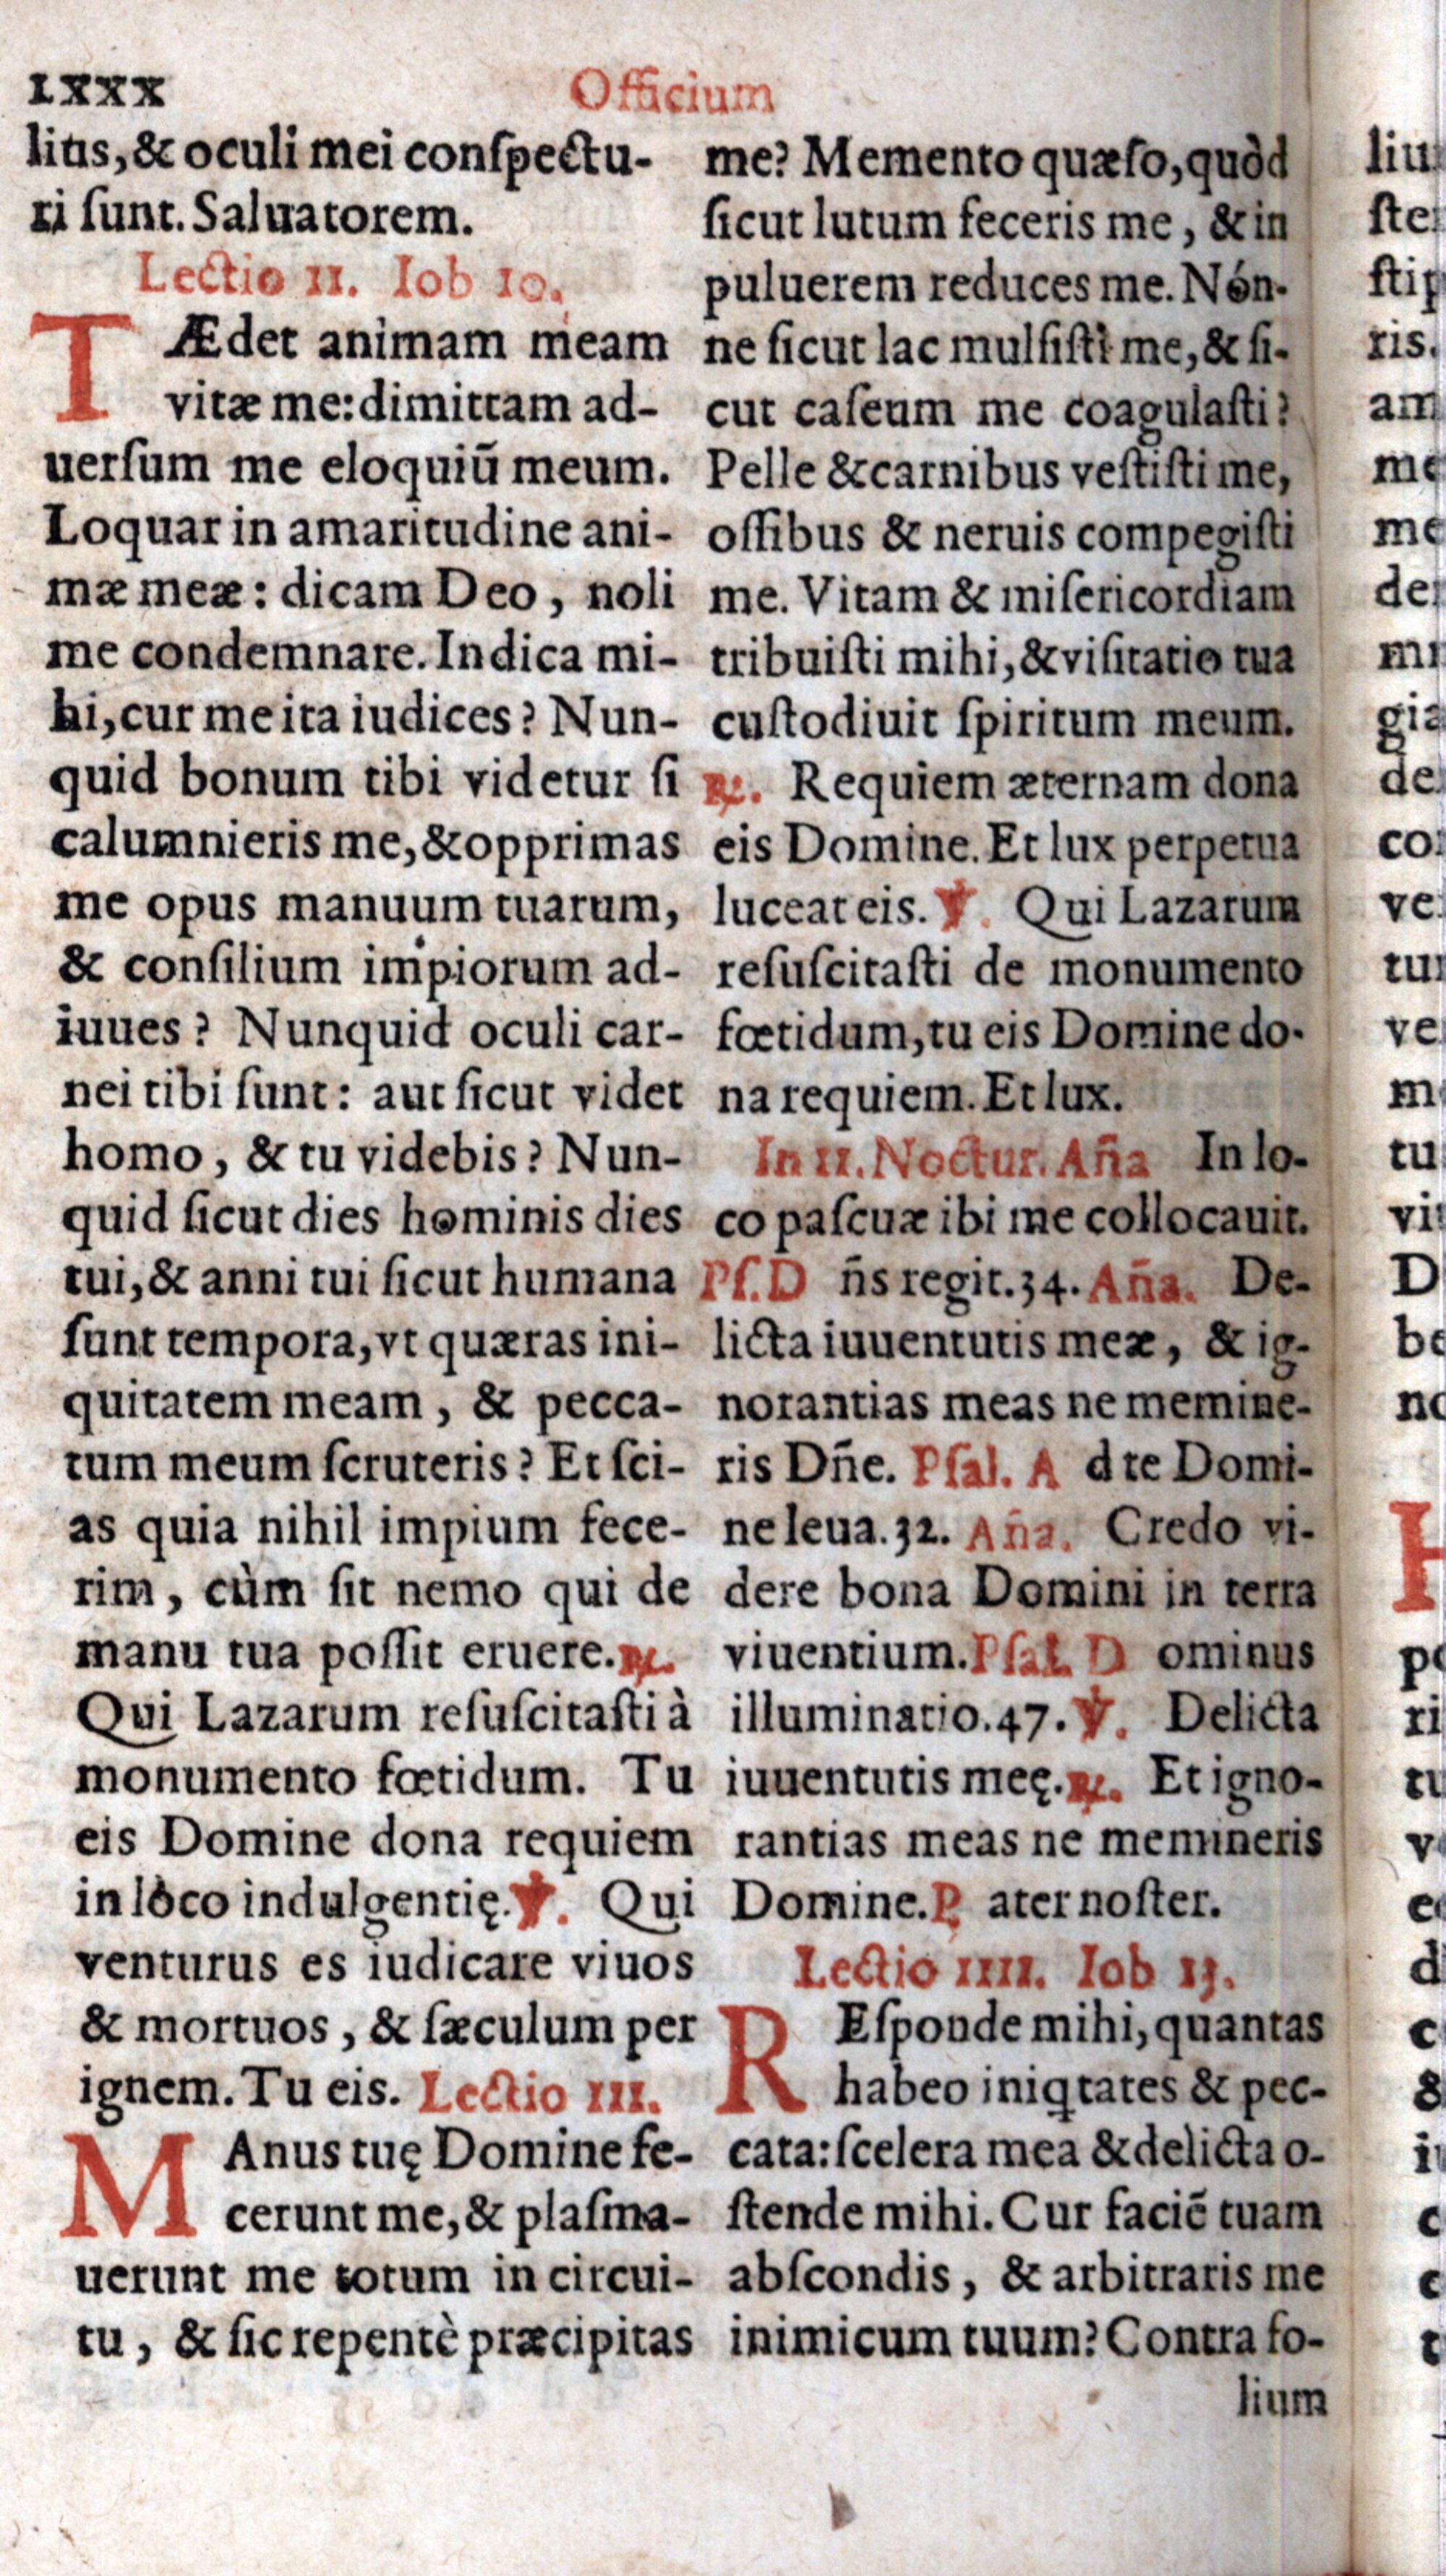 lxxx
Officium
lius, & oculi mei conſpectu-
ri ſunt. Saluatorem.
Lectio II. Iob 10.
TÆdet animam meam
vitæ me: dimittam ad-
uerſum me eloquiū meum.
Loquar in amaritudine ani-
mæ meæ: dicam Deo, noli
me condemnare. Indica mi-
hi, cur me ita iudices? Nun-
quid bonum tibi videtur ſi
calumnieris me, & opprimas
me opus manuum tuarum,
& conſilium impiorum ad-
iuues? Nunquid oculi car-
nei tibi ſunt: aut ſicut videt
homo, & tu videbis? Nun-
quid ſicut dies hominis dies
tui, & anni tui ſicut humana
ſunt tempora, vt quæras ini-
quitatem meam, & pecca-
tum meum ſcruteris? Et ſci-
as quia nihil impium fece-
rim, cùm ſit nemo qui de
manu tua poſſit eruere. ℟.
Qui Lazarum reſuſcitaſti à
monumento fœtidum. Tu
eis Domine dona requiem
in lòco indulgentię. ℣. Qui
venturus es iudicare viuos
& mortuos, & ſæculum per
ignem. Tu eis. Lectio III.
MAnus tuę Domine fe-
cerunt me, & plaſma-
uerunt me totum in circui-
tu, & ſic repentè præcipitas
me? Memento quæſo, quòd
ſicut lutum feceris me, & in
puluerem reduces me. Nón-
ne ſicut lac mulſiſti me, & ſi-
cut caſeum me coagulaſti?
Pelle & carnibus veſtiſti me,
oſſibus & neruis compegiſti
me. Vitam & miſericordiam
tribuiſti mihi, & viſitatio tua
cuſtodiuit ſpiritum meum.
℟. Requiem æternam dona
eis Domine. Et lux perpetua
luceat eis. ℣. Qui Lazarum
reſuſcitaſti de monumento
fœtidum, tu eis Domine do-
na requiem. Et lux.
In II. Noctur. Añа In lo-
co paſcuæ ibi me collocauit.
Pſ. D ñs regit. 34. Aña. De-
licta iuuentutis meæ, & ig-
norantias meas ne memine-
ris Dñe. Pſal. A d te Domi-
ne leua. 32. Aña. Credo vi-
dere bona Domini in terra
viuentium. Pſal. D ominus
illuminatio. 47. ℣. Delicta
iuuentutis meę. ℟. Et igno-
rantias meas ne memineris
Domine. P ater noſter.
Lectio IIII. Iob 13.
REſponde mihi, quantas
habeo iniq̃tates & pec-
cata: ſcelera mea & delicta o-
ſtende mihi. Cur faciē tuam
abſcondis, & arbitraris me
inimicum tuum? Contra fo-
lium